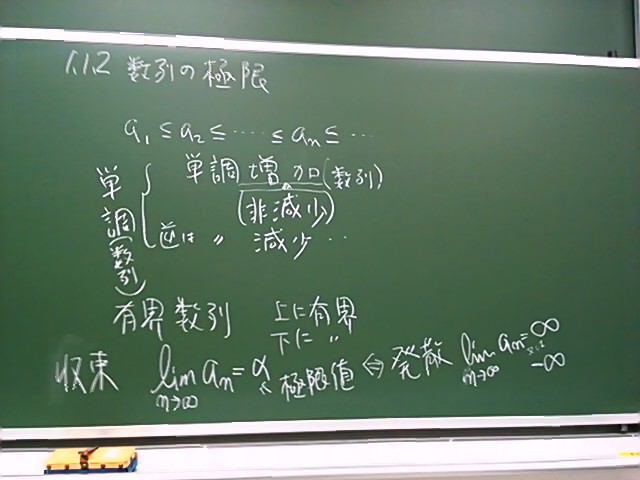 1.1.2 数列の極限
a₁ ≤ a₂ ≤ ‥‥ ≤ aₙ ≤ ‥
単調(数列)
単調増加(数列)
(非減少)
逆は 〃 減少 ‥
有界数列 上に有界
下に 〃
収束 lim aₙ = α 極限値 ⇔ 発散 lim aₙ = ∞
n→∞ n→∞ -∞